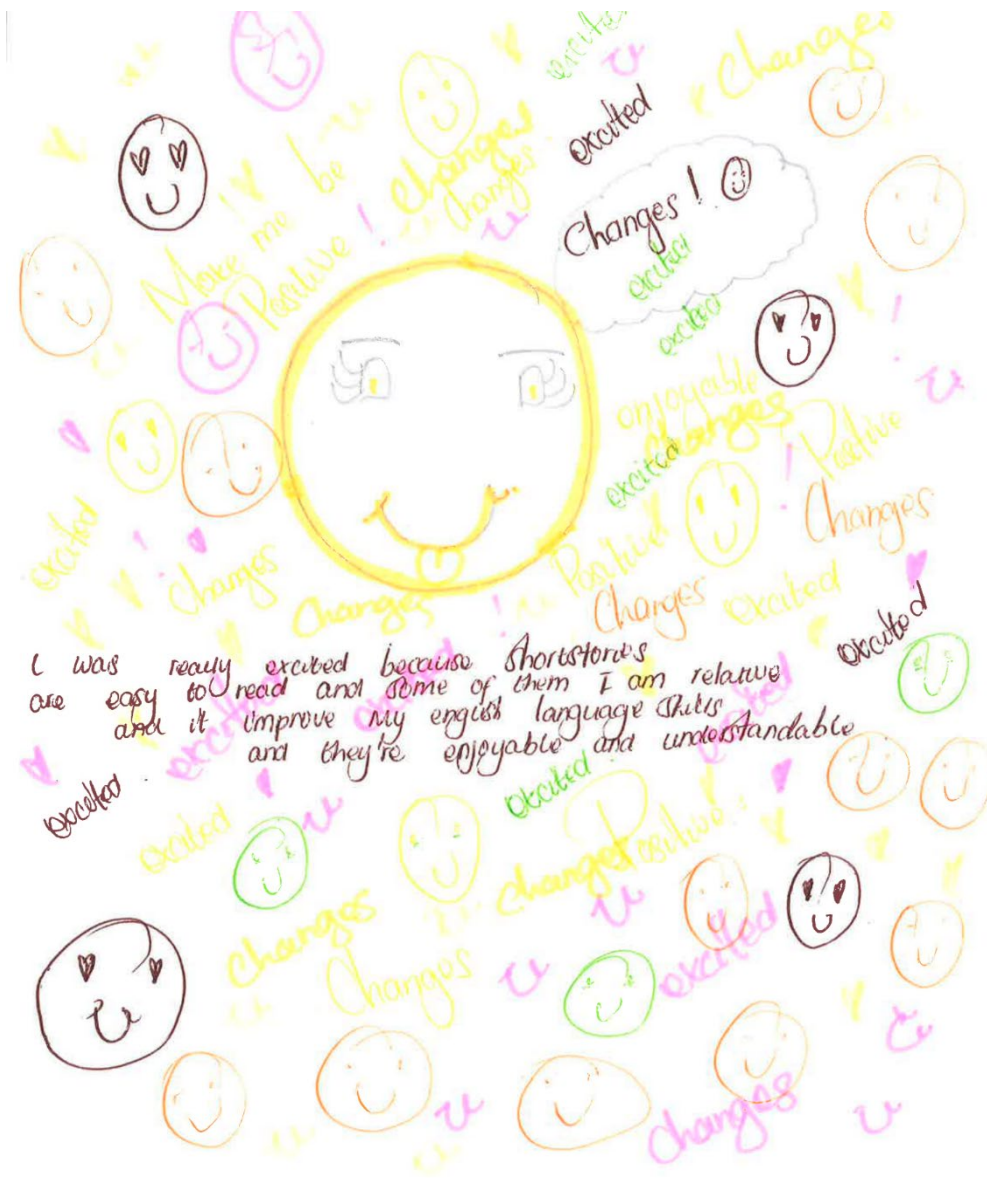 excited
Changes
excited
changes
changes
be
Make me
Positive !
Changes !
excited
excited
enjoyable
changes
excited
Positive
Changes
excited
changes
Positive!
Changes
Changes
excited
excited
I was really excited because Shortstories
are easy to read and some of them I am relative
and it improve my english language skills
and they're enjoyable and understandable
excited
excited
excited
excited
excited
excited
excited
Positive!
changes
changes
Changes
excited
changes